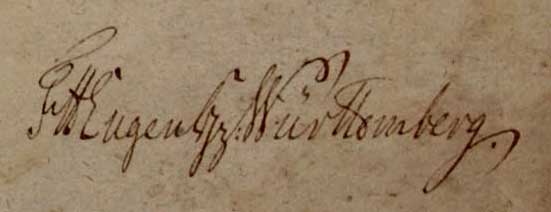 Eugen Hz: Württemberg.